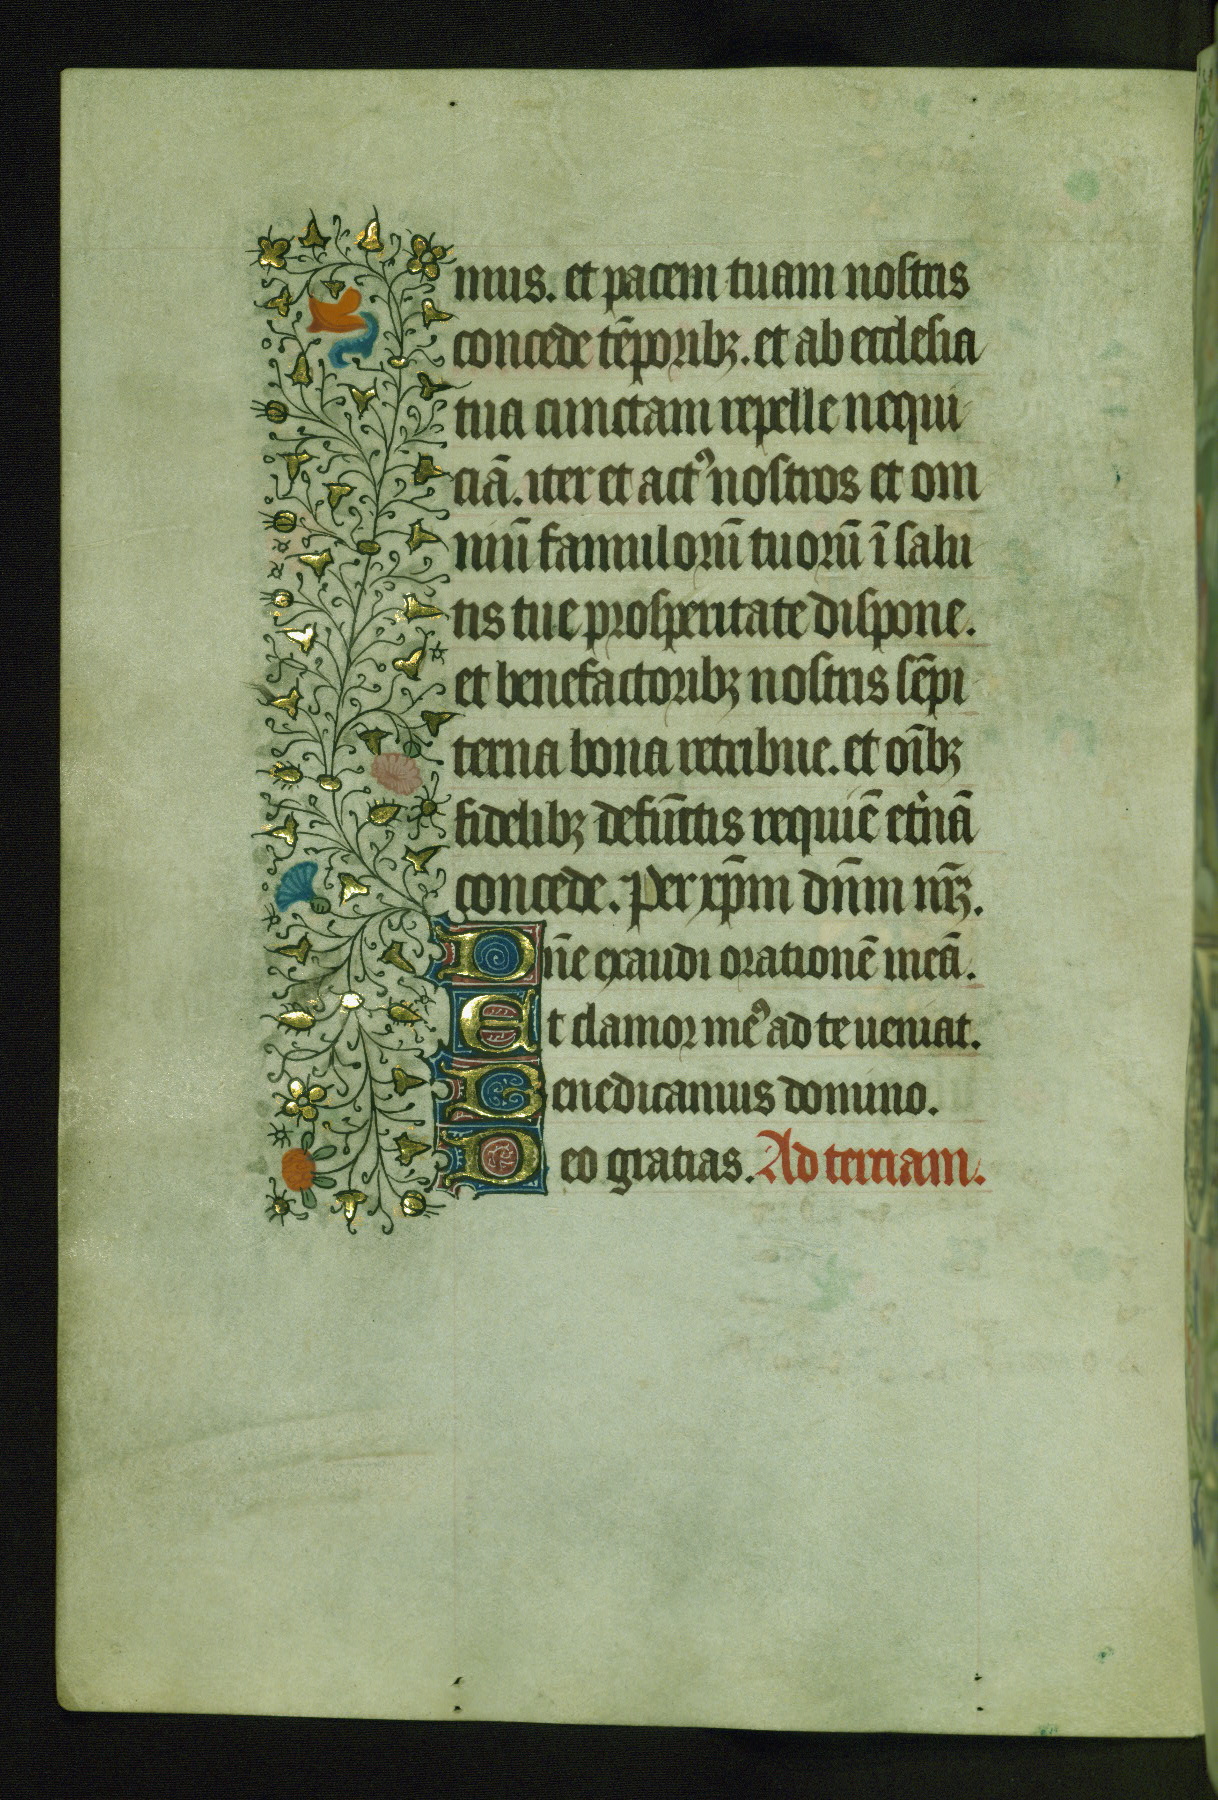 mus. et pacem tuam nostris
concede tēporibꝫ. et ab ecclesia
tua cunctam repelle nequi
ciā. iter et actꝰ nostros et om
niū famulorū tuorū ī salu
tis tue prosperitate dispone.
et benefactoribꝫ nostris sēpi
terna bona retribue. et oībꝫ
fidelibꝫ defūctis requiē et'nā
concede. Per xp̄m dn̄m nr̄ꝫ.
Dn̄e exaudi orationē meā.
Et clamor meꝰ ad te ueniat.
Benedicamus domino.
Deo gratias. Ad terciam.